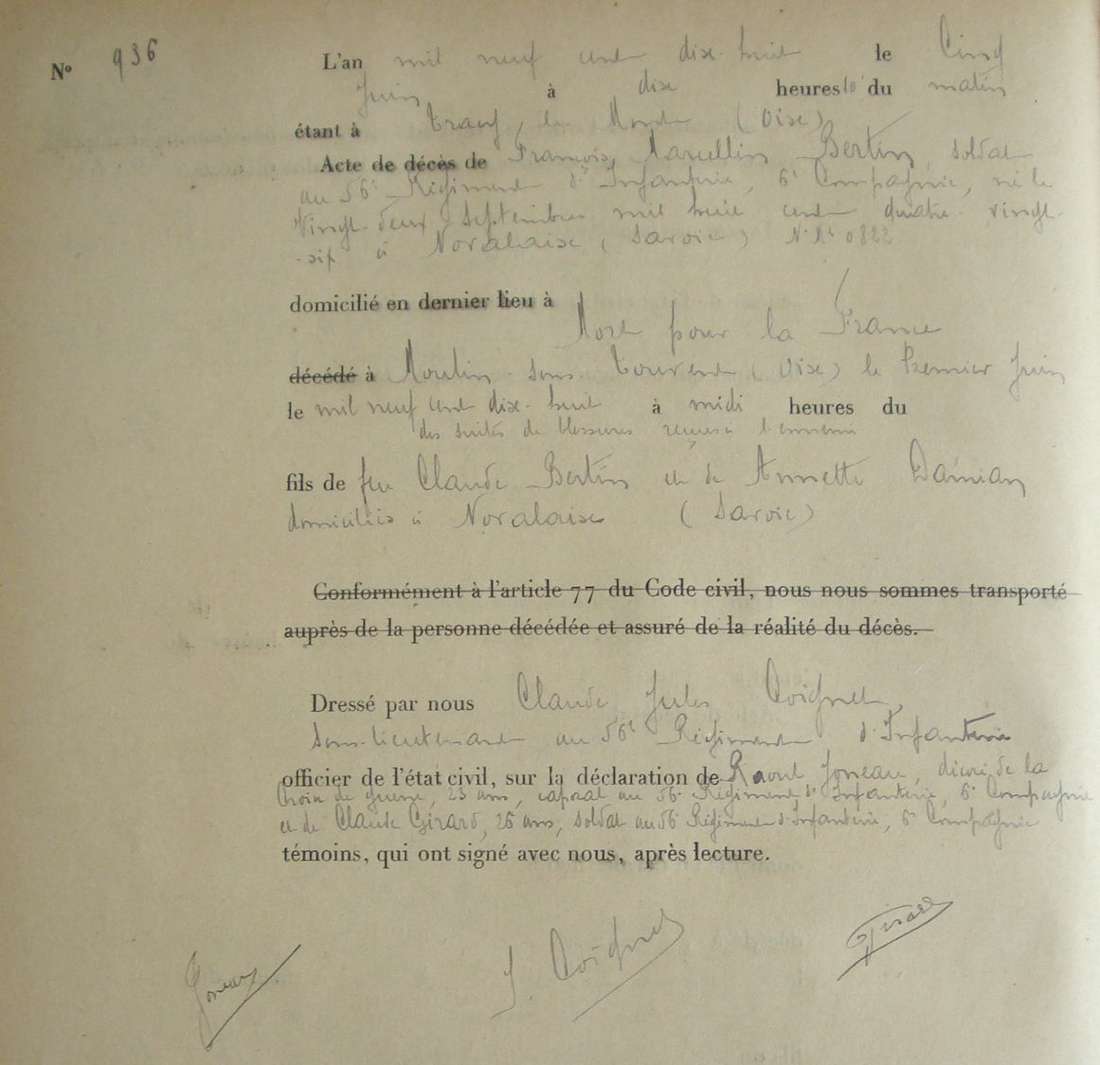 N° 936
L'an mil neuf cent dix-huit le Cinq
Juin à dix heures 10 du matin
étant à Tracy le Mont (Oise)
Acte de décès de François, Marcellin Bertin, soldat
au 56e Régiment d'Infanterie, 6e Compagnie, né le
Vingt-deux, Septembre mil huit cent quatre-vingt
-six à Novalaise (Savoie)
domicilié en dernier lieu à
Mort pour la France
décédé à Moulin-sous-Touvent (Oise) le Premier Juin
le mil neuf cent dix-huit à midi heures du
des suites de blessures reçues à l'ennemi
fils de feu Claude Bertin et de Annette Damian
domiciliés à Novalaise (Savoie)
Conformément à l'article 77 du Code civil, nous nous sommes transporté
auprès de la personne décédée et assuré de la réalité du décès.
Dressé par nous Claude Jules Coignet,
Sous-lieutenant au 56e Régiment d'Infanterie
officier de l'état civil, sur la déclaration de Raoul Joneau, décoré de la
Croix de guerre, 23 ans, caporal au 56e Régiment d'Infanterie, 6e Compagnie
et de Claude Girard, 26 ans, soldat au 56e Régiment d'Infanterie, 6e Compagnie
témoins, qui ont signé avec nous, après lecture.
Joneau J. Coignet Girard